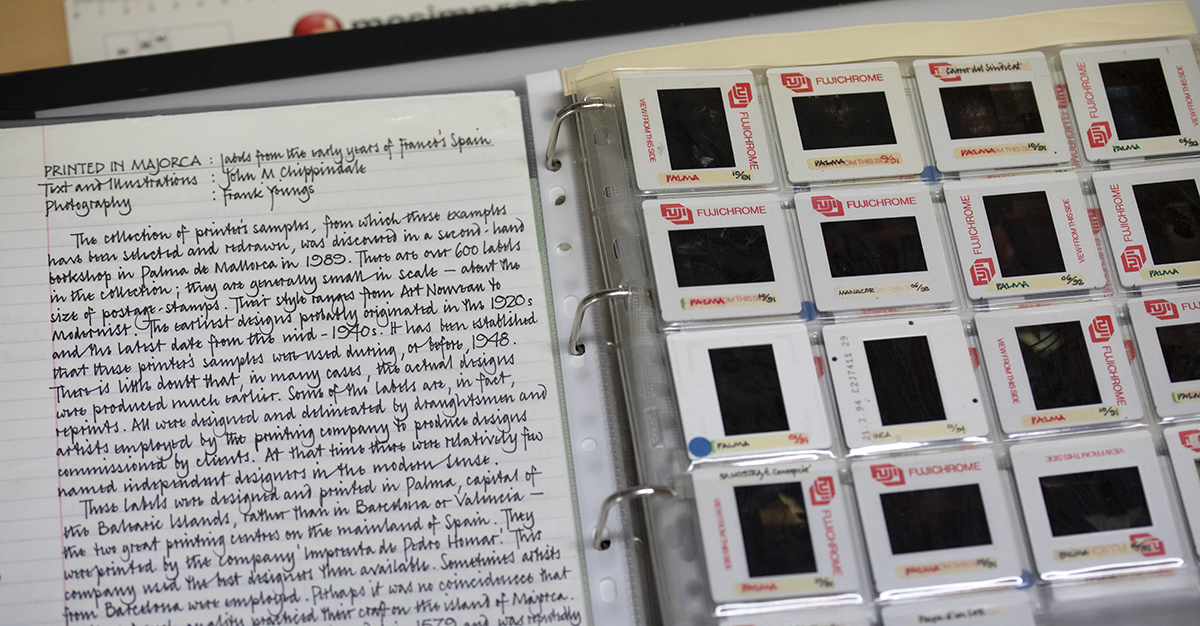 PRINTED IN MAJORCA : labels from the early years of Franco's Spain
Text and Illustrations : John M Chippindale
Photography : Frank Youngs
The collection of printer's samples, from which these examples
have been selected and redrawn, was discovered in a second-hand
bookshop in Palma de Mallorca in 1989. There are over 600 labels
in the collection; they are generally small in scale – about the
size of postage-stamps. Their style ranges from Art Nouveau to
Modernist. The earliest designs probably originated in the 1920s
and the latest date from the mid-1940s. It has been established
that these printer's samples were used during, or before, 1948.
There is little doubt that, in many cases, the actual designs
were produced much earlier. Some of the labels are, in fact,
reprints. All were designed and delineated by draughtsmen and
artists employed by the printing company to produce designs
commissioned by clients. At that time there were relatively few
named independent designers in the modern sense.
These labels were designed and printed in Palma, capital of
the Balearic Islands, rather than in Barcelona or Valencia –
the two great printing centres on the mainland of Spain. They
were printed by the company 'Imprenta de Pedro Homar.' This
company used the best designers then available. Sometimes artists
from Barcelona were employed. Perhaps it was no coincidence that
quality practiced their craft on the island of Majorca.
in 1579 and was reputedly
FUJI FUJICHROME
VIEW FROM THIS SIDE
PALMA 10/91
FUJI FUJICHROME
PALMA
FUJI
Carrer del Sindicat
PALMA 10/91
FUJI FUJICHROME
VIEW FROM THIS SIDE
PALMA
FUJI FUJICHROME
PALMA 10/91
FUJI FUJICHROME
MANACOR 06/92
FUJI FUJICHROME
VIEW FROM THIS SIDE
PALMA 06/92
FUJI FUJICHROME
PALMA
PALMA
INCA
FUJI FUJICHROME
VIEW FROM THIS SIDE
PALMA 10/91
FUJI
PALMA
FUJI FUJICHROME
VIEW FROM THIS SIDE
PALMA
FUJI FUJICHROME
PALMA
VIEW FROM THIS SIDE
FUJI
PALMA